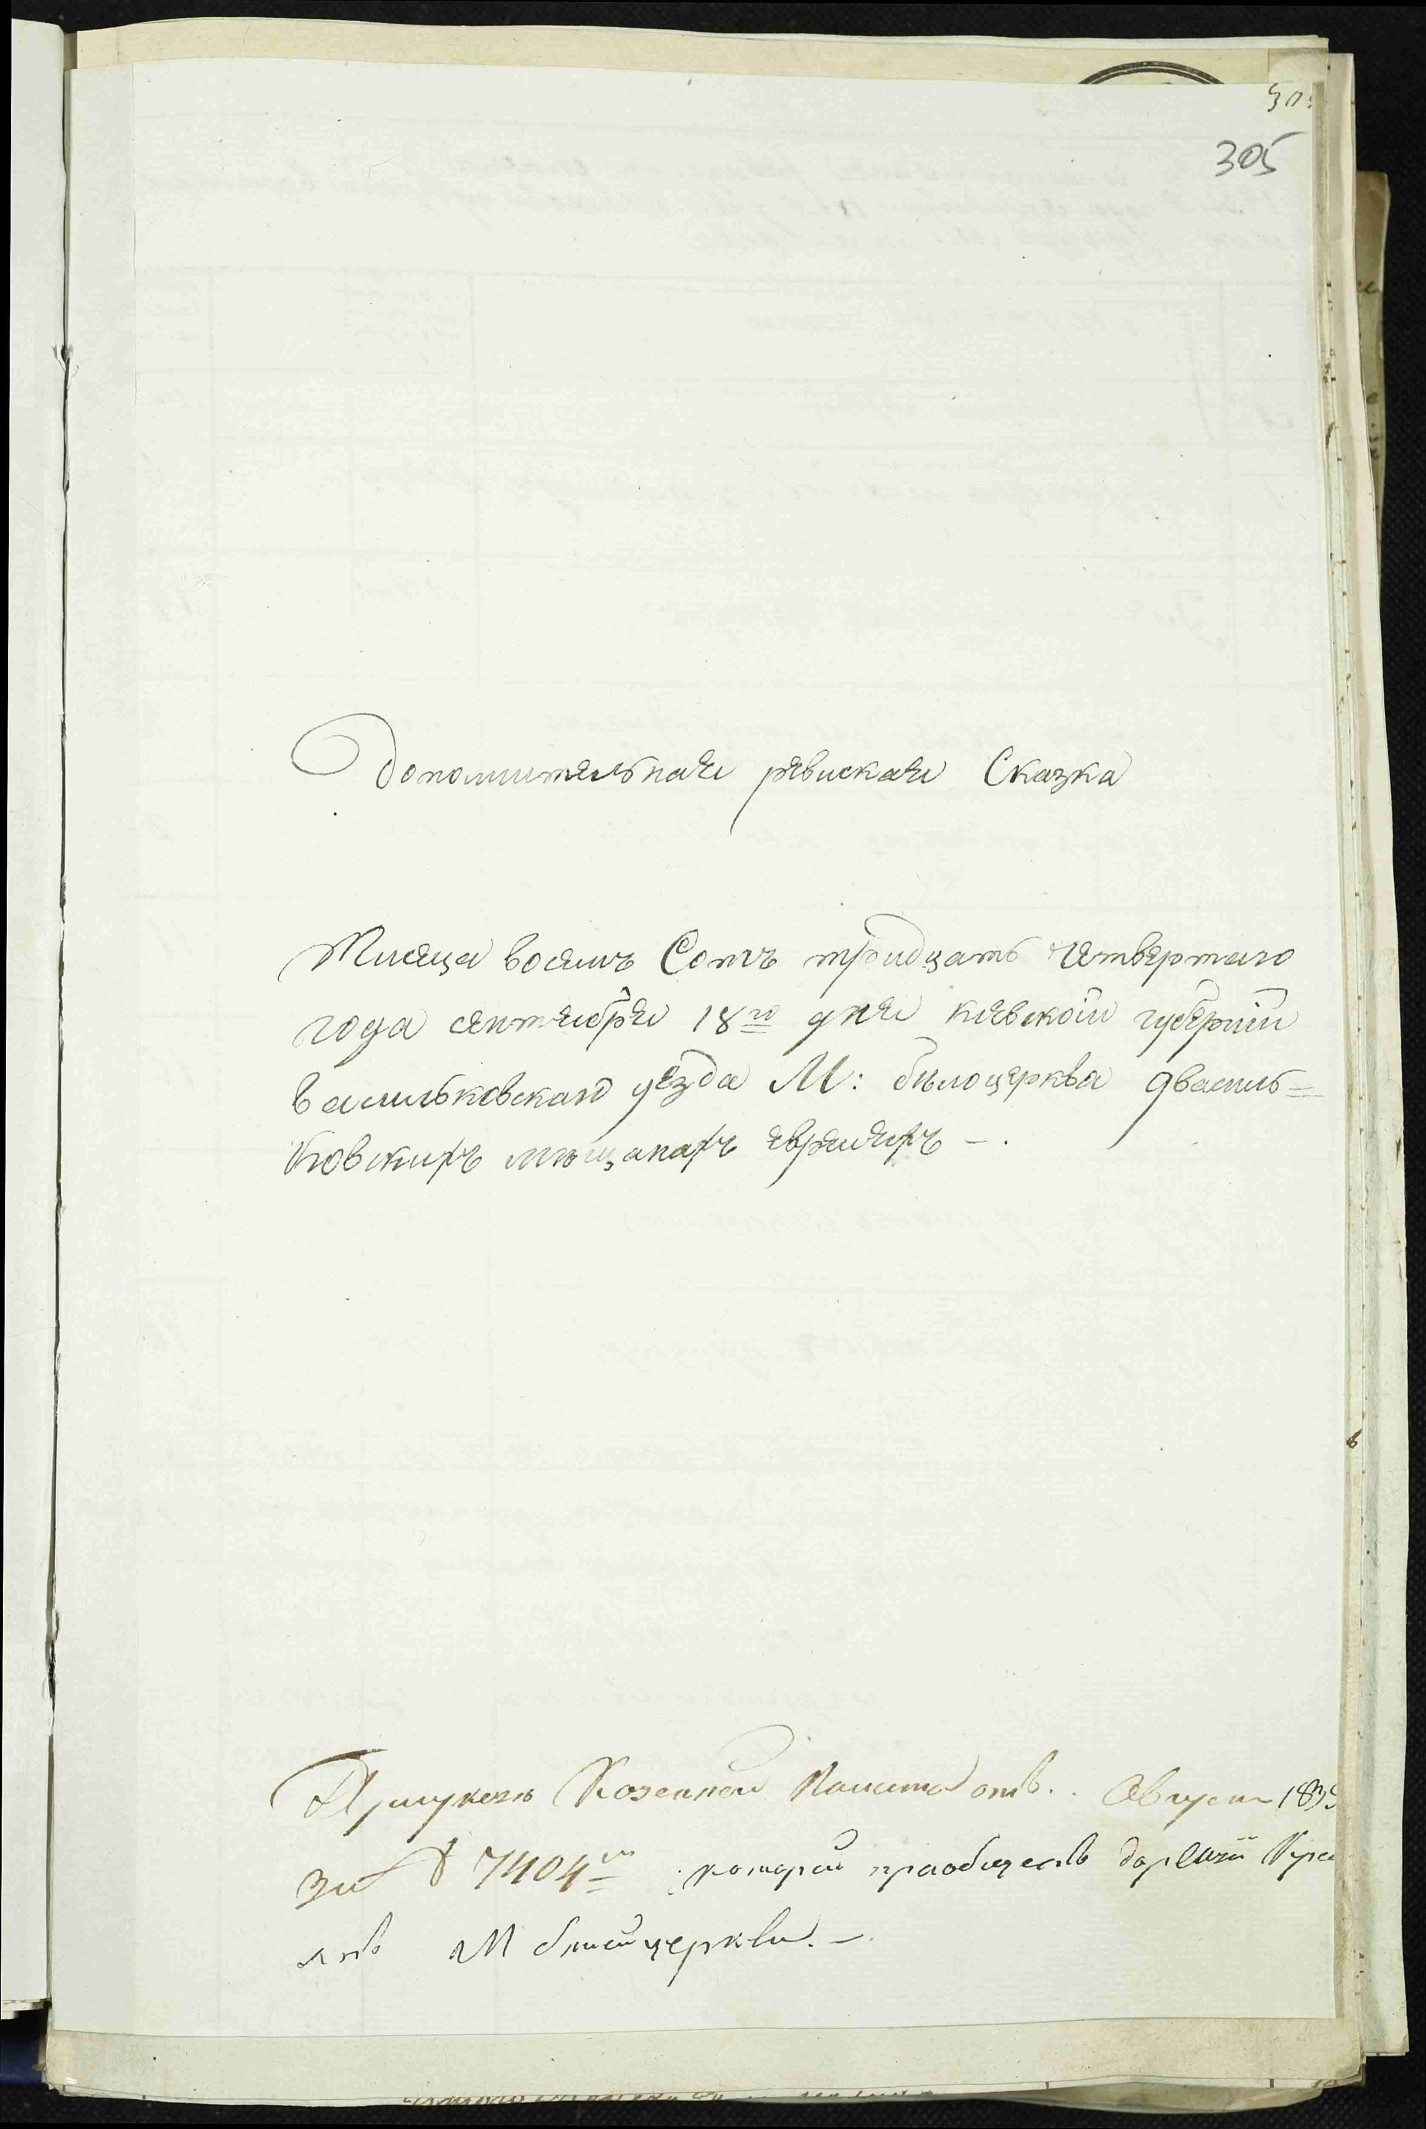 305
Дополнительная ревиская Сказка
Тисяца восемъ Сотъ тридцать четвертаго
года сентября 18го дня киевской губернии
васильковскаго уезда М: билоцерква о васил=
ковскихъ мещанахъ евреяхъ -.
Казенной Палаты отъ Августа 183
За № 7404м которой
М белой церкви. -